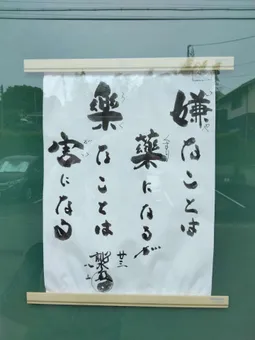 嫌なことは
薬になるが
楽なことは
害になる